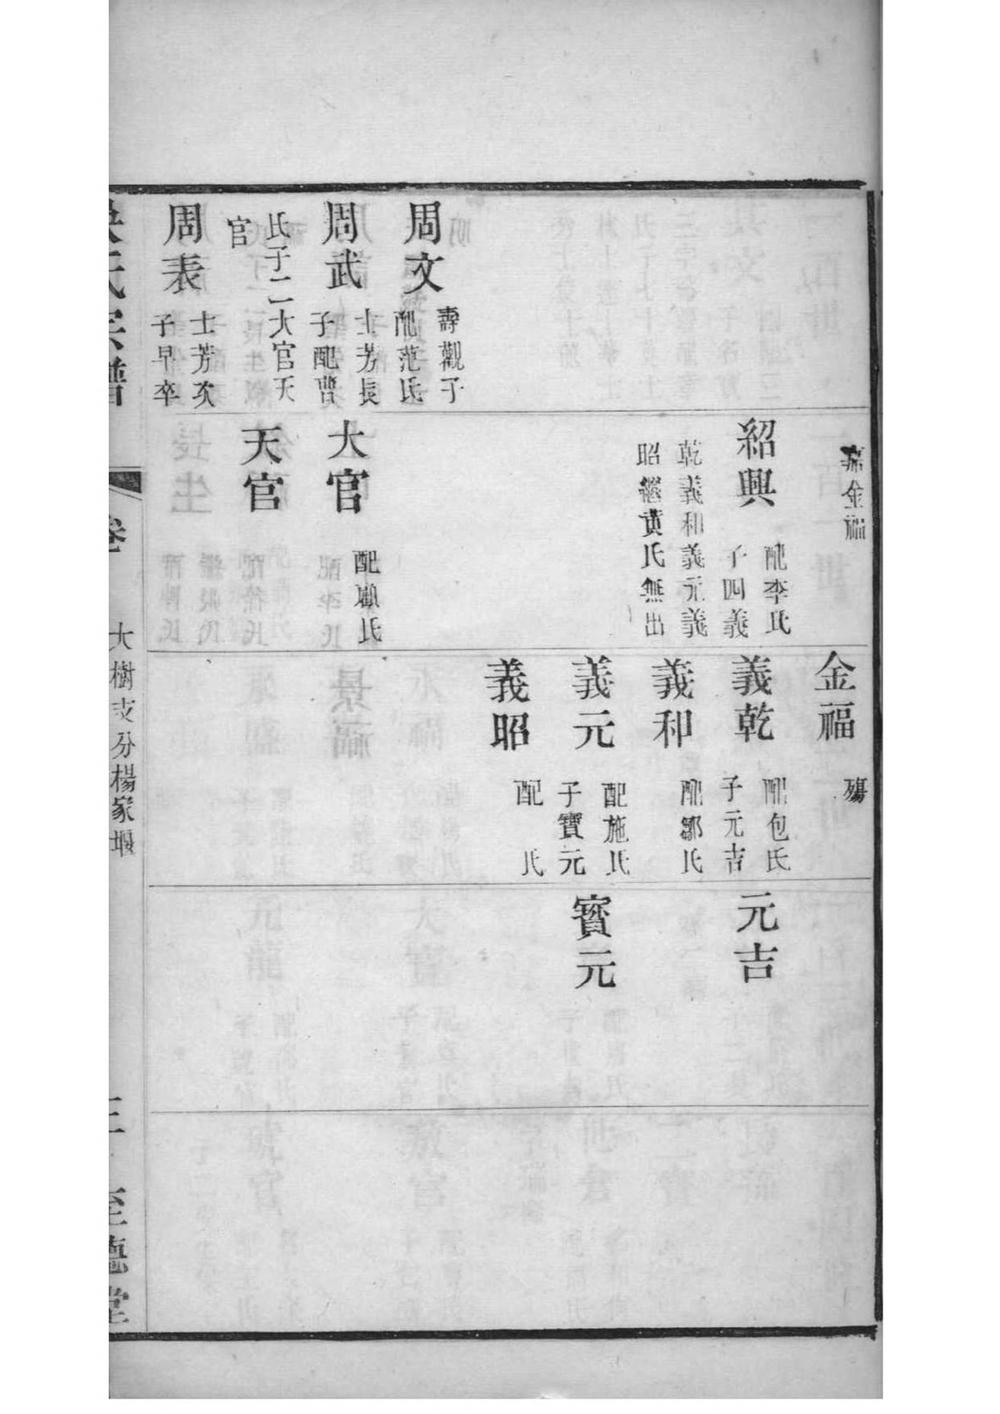 周文
壽觀子
配范氏
周武
士芳長
子配曹
氏子二大官天
官
周表
士芳次
子早卒
金福
紹興
配李氏
子四義
乾義和義元義
昭繼黄氏無出
大官
配顧氏
天官
金福
殤
義乾
配包氏
子元吉
義和
配鄒氏
義元
配施氏
子寶元
義昭
配 氏
元吉
寶元
氏宗譜
卷
大樹支分楊家堰
三
至德堂